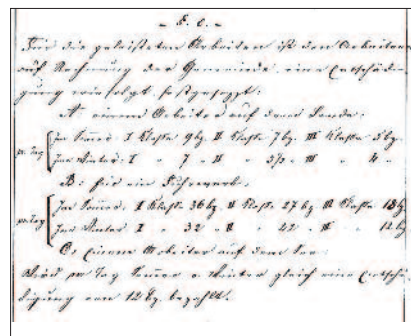 - § 6. -
Für die geleisteten Arbeiten ist den Arbeitern
auf Rechnung der Gemeinde eine Entschädi-
gung wie folgt festgesetzt:
A: einem Arbeiter auf dem Lande:
pr. Tag Im Somer: I Klaße 9 bz. II Klaße 7 bz. III Klaße 5 bz.
Im Winter: I " 7 " II " " III " 4 "
B: für ein Fuhrwerk:
pr. Tag Im Somer: I Klaße 36 bz II Klaße 27 bz III Klaße 18 bz
Im Winter I " 32 " II " 22 " III " 12 bz
C: Einem Arbeiter auf dem See
Wird pr Tag Somer u. Winter gleich eine Entschä-
digung von 12 bz. bezahlt.